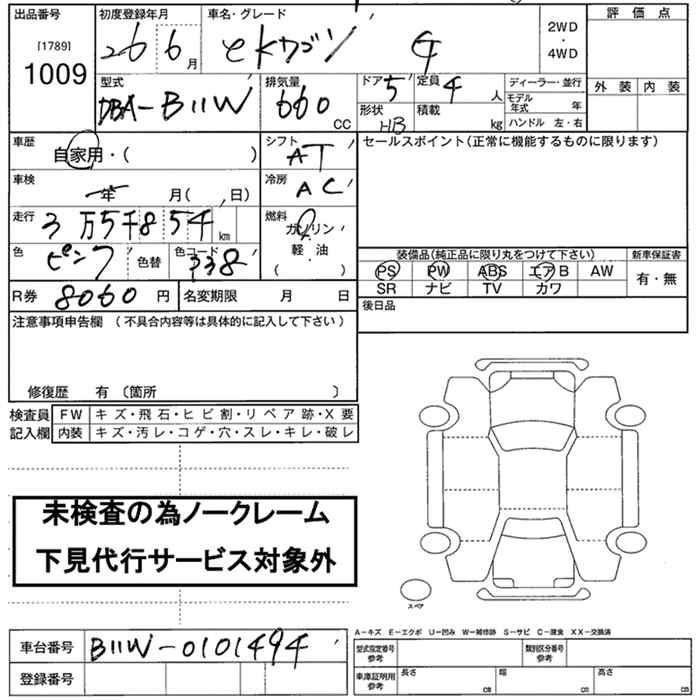 出品番号 初度登録年月 車名・グレード 評価点
[1789]
1009 26 6月 eKワゴン G 2WD・4WD
外装 内装
型式 排気量 ドア 定員 ディーラー・並行
DBA-B11W 660CC 5 4人 モデル年式 年
形状 積載
HB kg ハンドル 左・右
車歴 自家用・( ) シフト AT セールスポイント(正常に機能するものに限ります)
車検 年 月( 、日) 冷房 AC
走行 3万5千854km 燃料 ガソリン・軽・油( )
色 ピンク 色替 色コード 338
装備品(純正品に限り丸をつけて下さい) 新車保証書
PS PW ABS エアB AW 有・無
SR ナビ TV カワ
R券 8060円 名変期限 月 日 後日品
注意事項申告欄 (不具合内容等は具体的に記入して下さい)
修復歴 有 〔箇所 〕
検査員記入欄 FW キズ・飛石・ヒビ割・リペア跡・X要
内装 キズ・汚レ・コゲ・穴・スレ・キレ・破レ
未検査の為ノークレーム
下見代行サービス対象外
スペア
A-キズ E-エクボ U-凹み W-補修跡 S-サビ C-腐食 XX-交換済
車台番号 B11W-0101494 型式指定番号 参考 類別区分番号 参考
登録番号 車庫証明用 参考 長さ cm 幅 cm 高さ cm